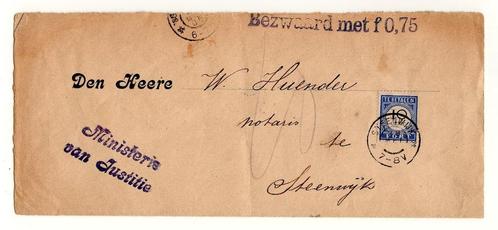 Bezwaard met f 0,75
Den Heere W. Huender
notaris
te
Steenwijk
Ministerie
van Justitie
TE BETALEN
10
CENT
7-8V